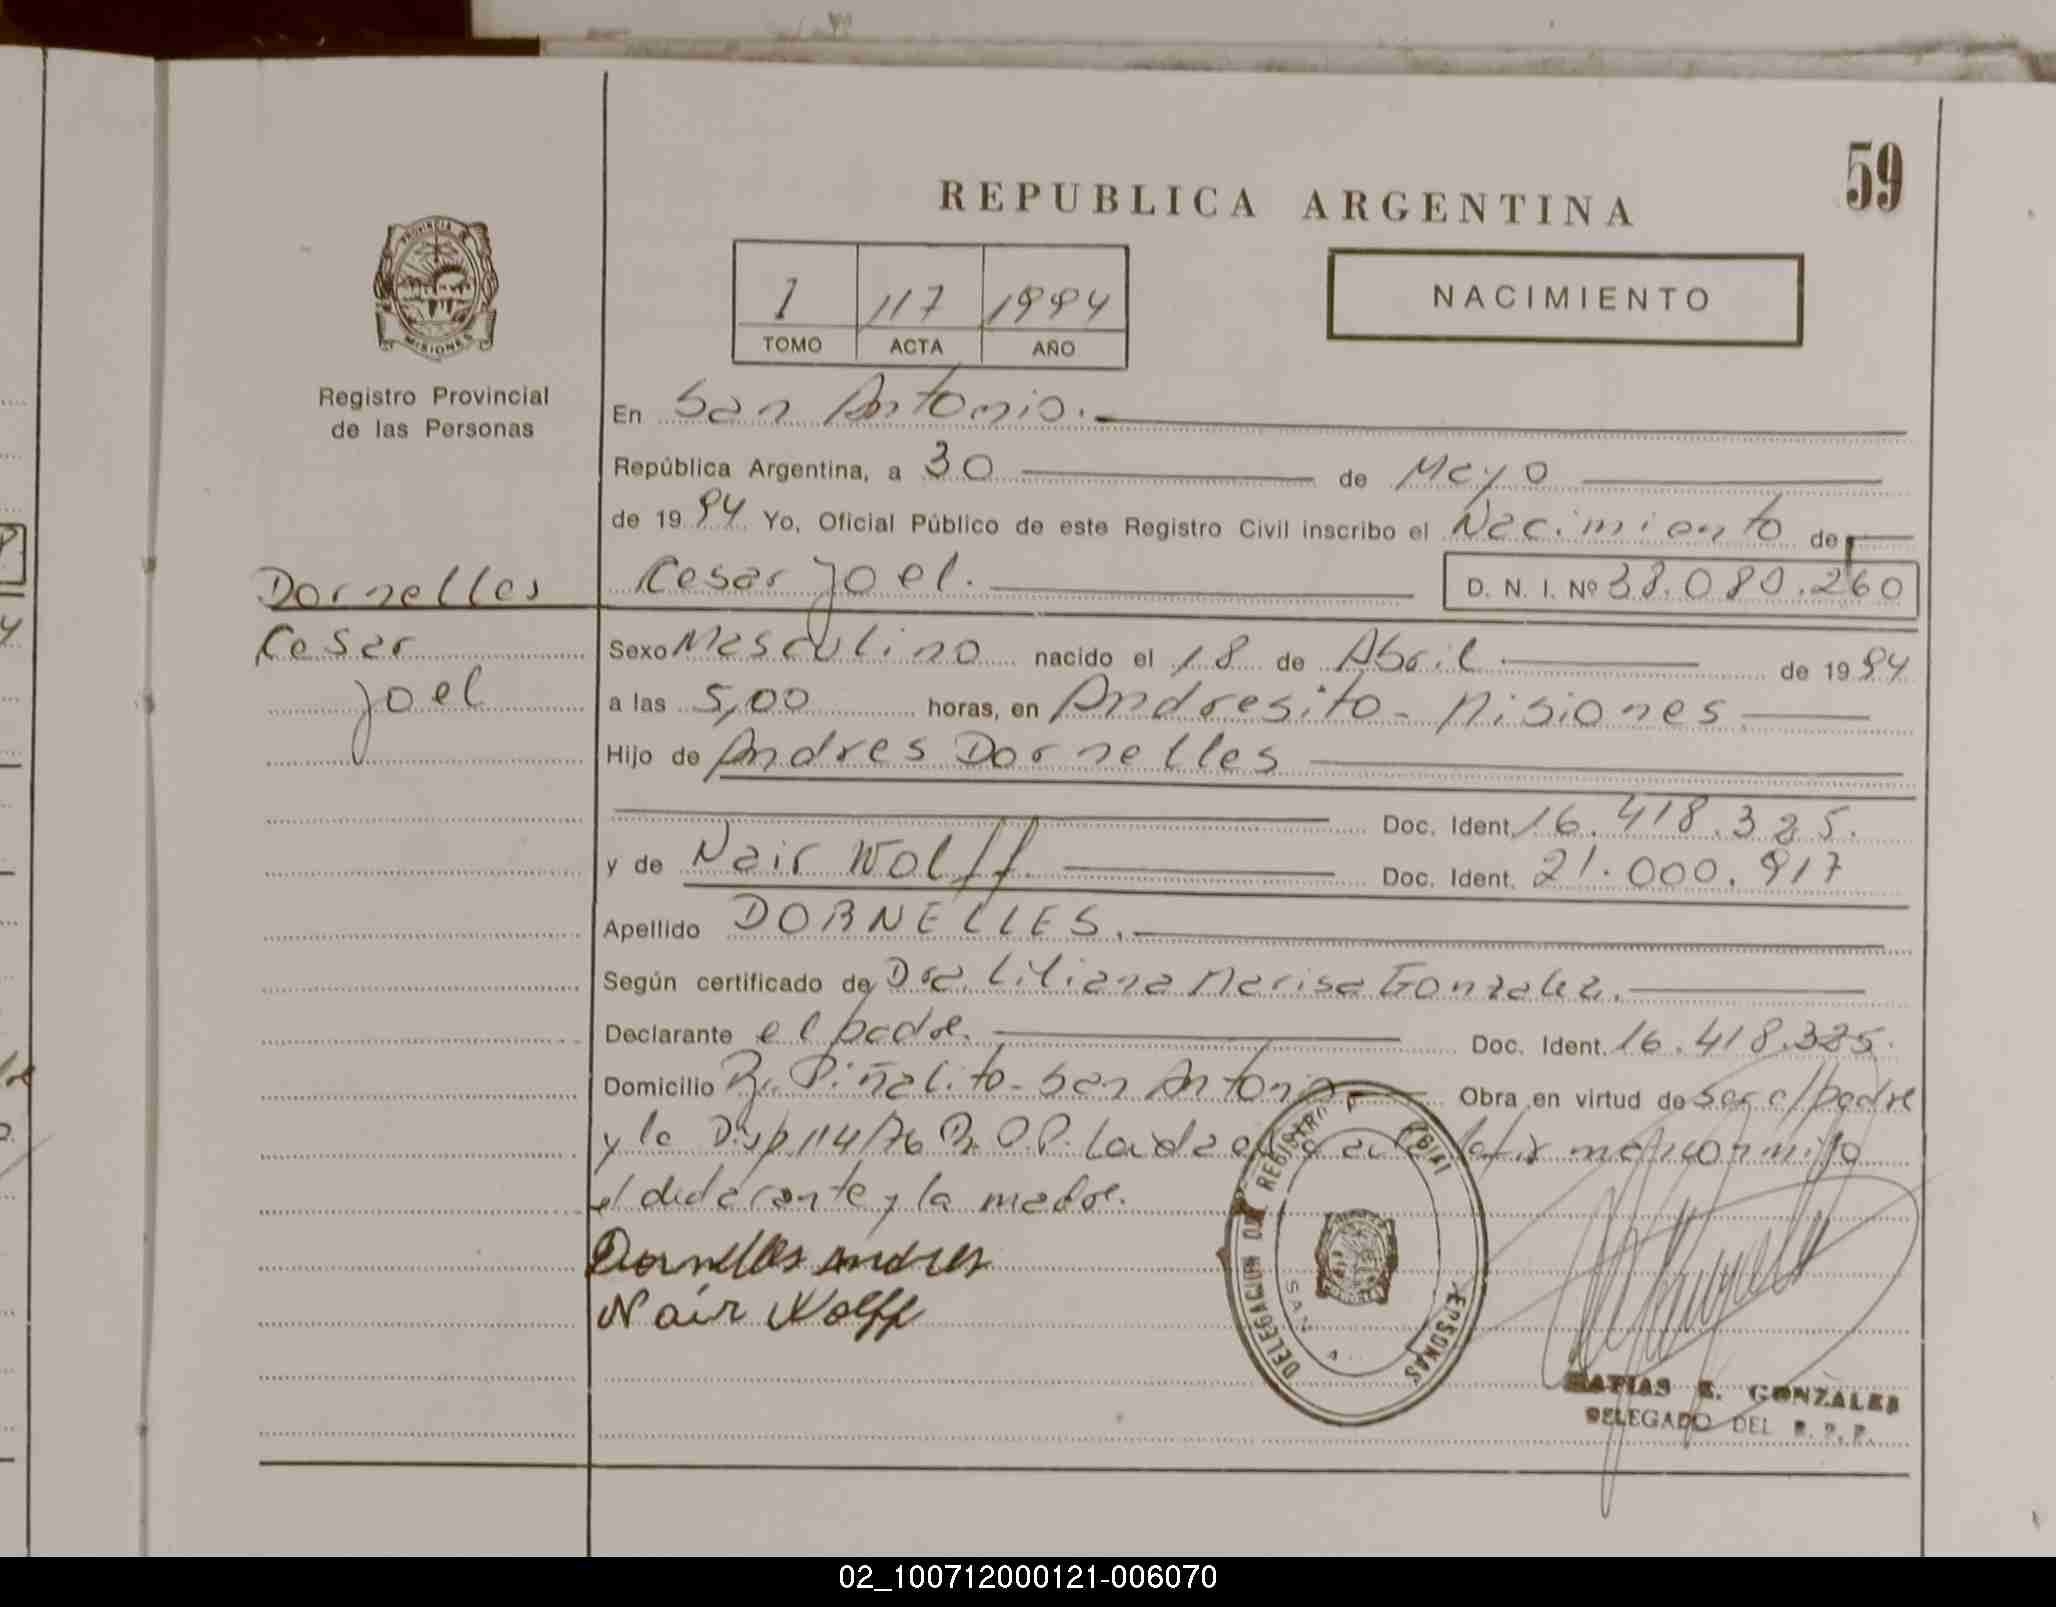 59
REPUBLICA ARGENTINA
PROVINCIA DE
MISIONES
Registro Provincial
de las Personas
1 117 1994
TOMO ACTA AÑO
NACIMIENTO
En San Antonio.
República Argentina, a 30 de Mayo
de 1994 Yo, Oficial Público de este Registro Civil inscribo el Nacimiento de
Dornelles Cesar Joel. D. N. I. Nº 38.080.260
Cesar Sexo Masculino nacido el 18 de Abril de 1994
Joel a las 5,00 horas, en Andresito - Misiones
Hijo de Andres Dornelles
Doc. Ident. 16.418.325.
y de Nair Wolff Doc. Ident. 21.000.917
Apellido DORNELLES.
Según certificado de Dra. Liliana Marisa Gonzalez.
Declarante el padre. Doc. Ident. 16.418.325.
Domicilio Piñalito - San Antonio Obra en virtud de ser el padre
y la Disp. 114/76 R.P.P. Leida el acta
el declarante y la madre.
Dornelles Andres
Nair Wolff
DELEGACION DEL REGISTRO PERSONAS
SAN
MATIAS E. GONZALEZ
DELEGADO DEL R. P. P.
02_100712000121-006070